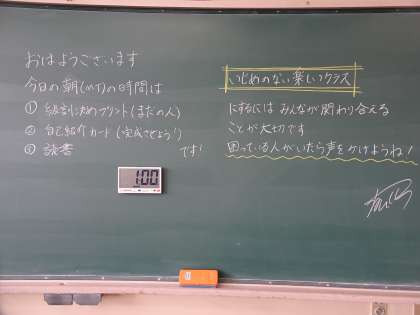 おはようございます
今日の朝(MT)の時間は
① 係割に決めプリント(まだの人)
② 自己紹介カード(完成させよう!)
③ 読書 です!
1:00
いじめのない楽しいクラス
にするには みんなが関わり合える
ことが大切です
困っている人がいたら声をかけようね!